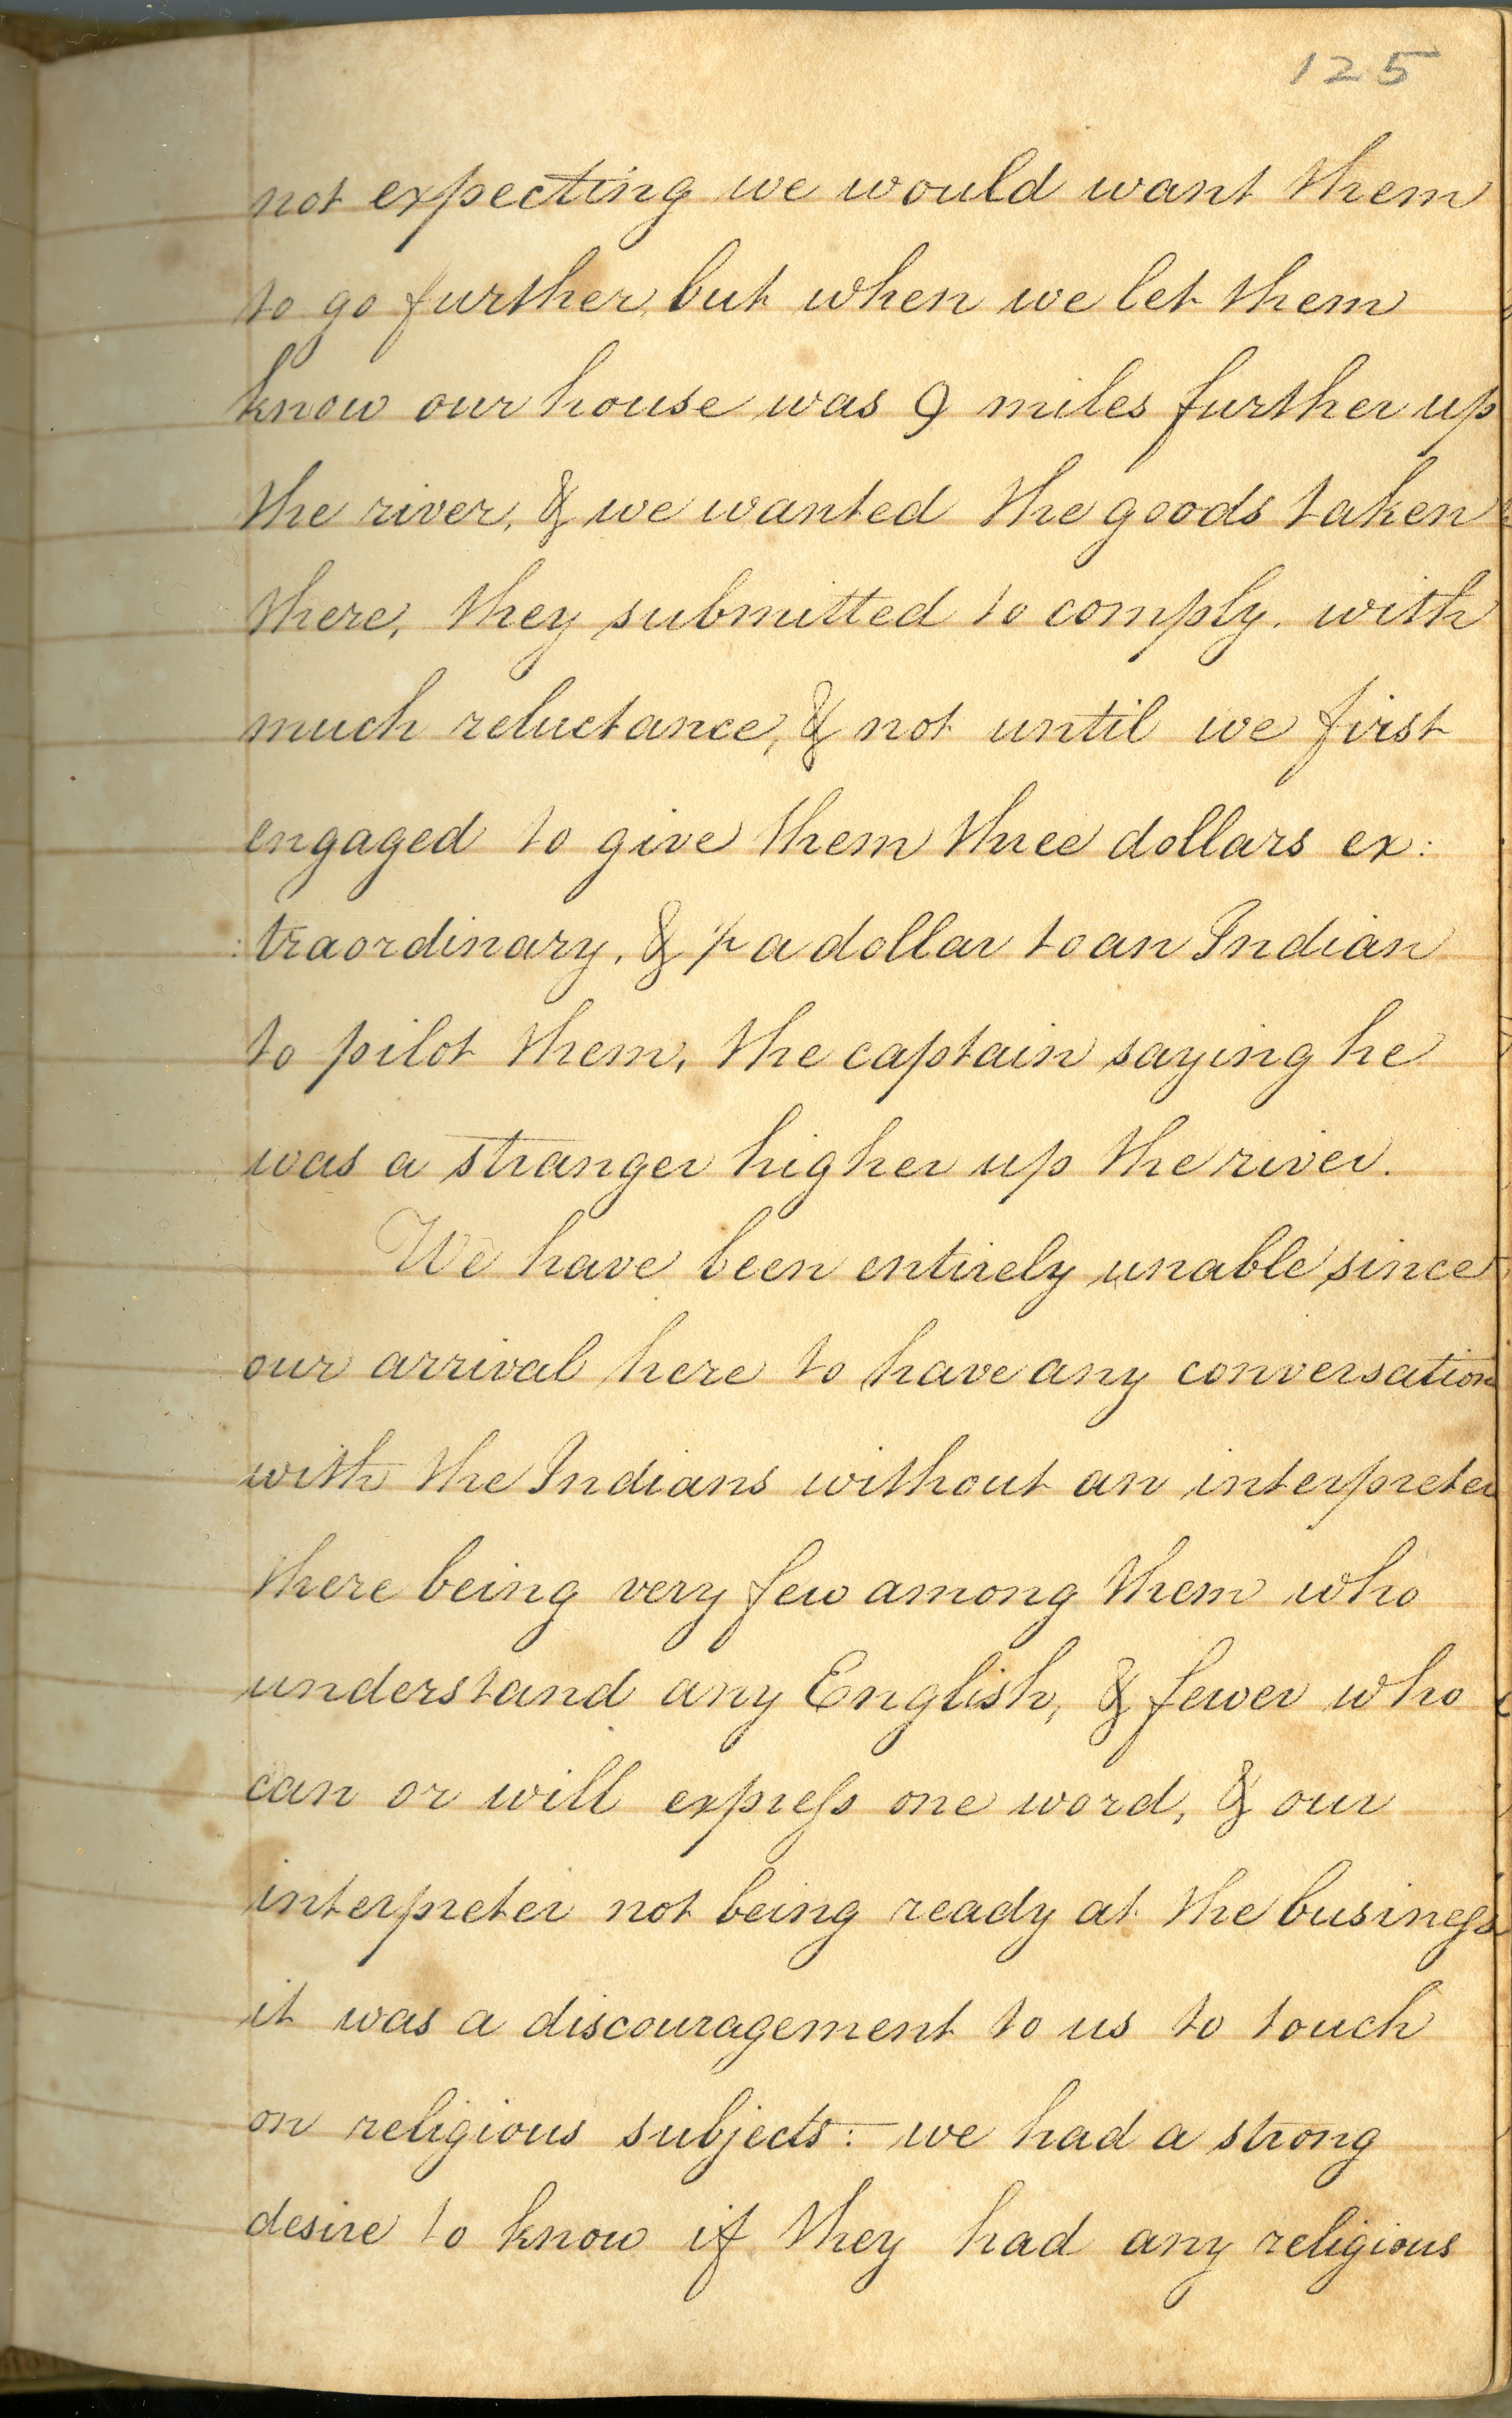 125
not expecting we would want them
to go further, but when we let them
know our house was 9 miles further up
the river, & we wanted the goods taken
there, they submitted to comply. with
much reluctance, & not until we first
engaged to give them three dollars ex:
:traordinary, & a dollar to an Indian
to pilot them, the captain saying he
was a stranger higher up the river.
We have been entirely unable since
our arrival here to have any conversation
with the Indians without an interpreter
there being very few among them who
understand any English, & fewer who
can or will expreſs one word, & our
interpreter not being ready at the busineſs
it was a discouragement to us to touch
on religious subjects: we had a strong
desire to know if they had any religious